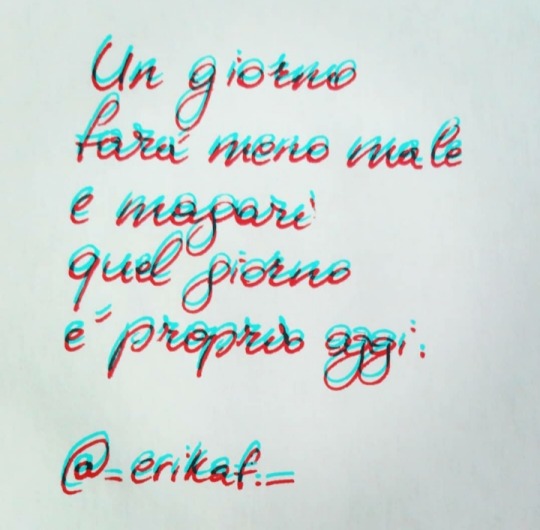 Un giorno
farà meno male
e magari
quel giorno
e' proprio oggi.

@_erikaf._